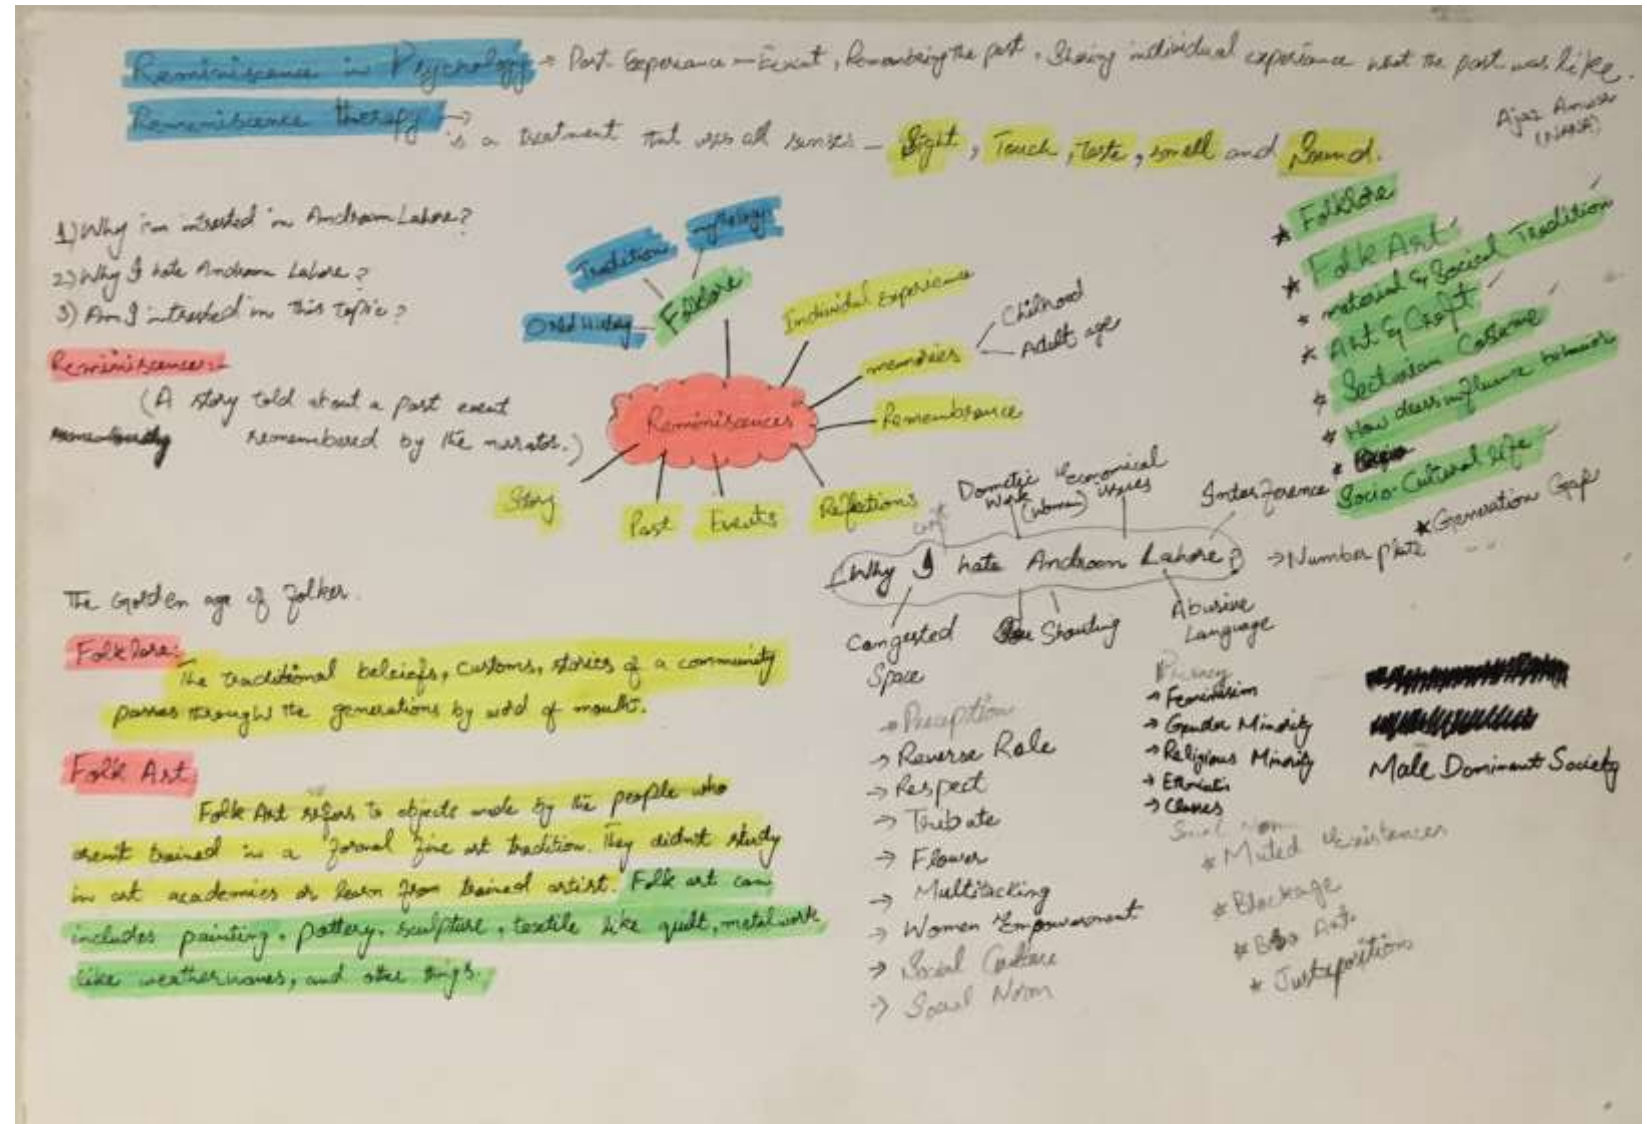 Reminiscence in Psychology → Past Experiance – Event, Remembering the past, Sharing individual experiance what the past was like.
Reminiscence therapy →
is a treatment that uses all senses – Sight, Touch, Taste, smell and Sound.
Ajaz Anwar
(NANA)
1) Why i'm intrested in Androon Lahore?
2) Why I hate Androon Lahore?
3) Am I intrested in this Topic?
Reminiscences:-
(A story told about a past event
remembered by the narrator.)
Tradition
mythology
Oral History
Folklore
Individual Experiance
memories
Chilhood
Adult age
Remembrance
Reminiscences
Story
Past
Events
Reflections
★ Folklore
★ Folk Art
★ material & Social Tradition
★ Art & Craft
★ Sectorian Costume
★ How dress influence behavior
★ Socio-Cultural life
★ Generation Gap
Dometic Work (Women)
Economical issues
Interference
(Why I hate Androon Lahore?)
→ Number plate
Congested
Space
Shouting
Abusive
Language
The Golden age of folker.
Folklore:
The traditional beleiefs, customs, stories of a community
passes through the generations by word of mouth.
Folk Art
Folk Art refers to objects made by the people who
aren't trained in a formal fine art tradition. They didn't study
in art academies or learn from trained artist. Folk art can
includes painting, pottery, sculpture, textile like quilt, metalwork
like weathervanes, and other things.
→ Preception
→ Reverse Role
→ Respect
→ Thebate
→ Flower
→ Multitacking
→ Women Empowerment
→ Social Culture
→ Social Norm
Privacy
→ Feminisim
→ Gender Minority
→ Religious Minority
→ Classes
Male Dominant Society
Social Norm
* Muted Existances
* Blockage
* Justeposition